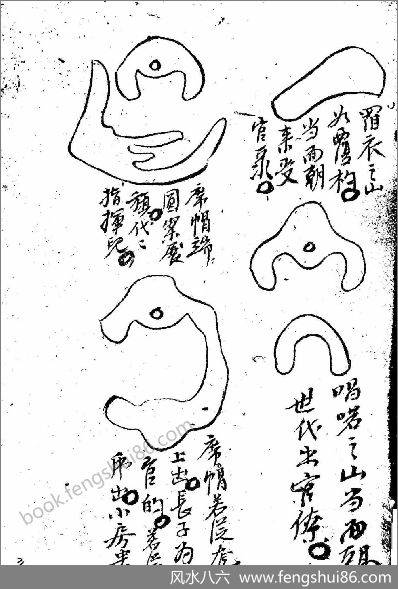 羅衣之山
如覆杓
当面朝
来受
官录
席帽端
圓案展
代々
指揮
唱喏之山当面朝
世代出官僚
席帽若從
上出長子为
官的若
出小房
book.fengshui86.com
风水八六 | www.fengshui86.com